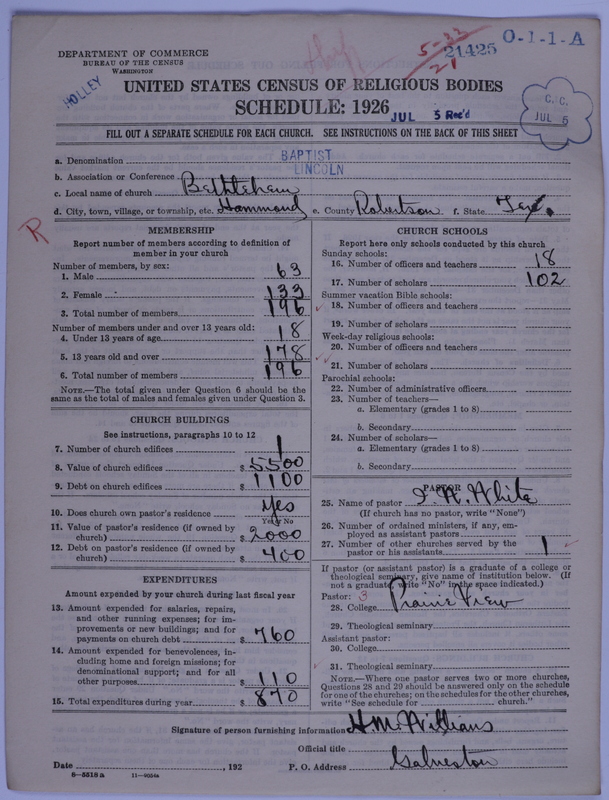 DEPARTMENT OF COMMERCE
BUREAU OF THE CENSUS
WASHINGTON
HOLLEY
5-22
21
21425
O-1-1-A
UNITED STATES CENSUS OF RELIGIOUS BODIES
SCHEDULE: 1926
JUL 3 Rec'd
C.C.
JUL 5
FILL OUT A SEPARATE SCHEDULE FOR EACH CHURCH. SEE INSTRUCTIONS ON THE BACK OF THIS SHEET
a. Denomination BAPTIST
b. Association or Conference LINCOLN
c. Local name of church Bethlehem
d. City, town, village, or township, etc. Hammond e. County Robertson f. State Tex.
R
MEMBERSHIP
Report number of members according to definition of
member in your church
Number of members, by sex:
1. Male 63
2. Female 133
3. Total number of members 196
Number of members under and over 13 years old:
4. Under 13 years of age 18
5. 13 years old and over 178
6. Total number of members 196
NOTE.—The total given under Question 6 should be the
same as the total of males and females given under Question 3.
CHURCH BUILDINGS
See instructions, paragraphs 10 to 12
7. Number of church edifices 1
8. Value of church edifices $ 5500
9. Debt on church edifices $ 1100
10. Does church own pastor's residence? Yes
Yes or No
11. Value of pastor's residence (if owned by
church) $ 2000
12. Debt on pastor's residence (if owned by
church) $ 400
EXPENDITURES
Amount expended by your church during last fiscal year
13. Amount expended for salaries, repairs,
and other running expenses; for im-
provements or new buildings; and for
payments on church debt $ 760
14. Amount expended for benevolences, in-
cluding home and foreign missions; for
denominational support; and for all
other purposes $ 110
15. Total expenditures during year $ 870
CHURCH SCHOOLS
Report here only schools conducted by this church
Sunday schools:
16. Number of officers and teachers 18
17. Number of scholars 102
Summer vacation Bible schools:
18. Number of officers and teachers
19. Number of scholars
Week-day religious schools:
20. Number of officers and teachers
21. Number of scholars
Parochial schools:
22. Number of administrative officers
23. Number of teachers—
a. Elementary (grades 1 to 8)
b. Secondary
24. Number of scholars—
a. Elementary (grades 1 to 8)
b. Secondary
PASTOR
25. Name of pastor White
(If church has no pastor, write "None")
26. Number of ordained ministers, if any, em-
ployed as assistant pastors
27. Number of other churches served by the
pastor or his assistants 1
If pastor (or assistant pastor) is a graduate of a college or
theological seminary, give name of institution below. (If
not a graduate, write "No" in the space indicated.)
Pastor: 3
28. College Prairie View
29. Theological seminary
Assistant pastor:
30. College
31. Theological seminary
NOTE.—Where one pastor serves two or more churches,
Questions 28 and 29 should be answered only on the schedule
for one of the churches; on the schedules for the other churches,
write "See schedule for church."
Signature of person furnishing information H. M. Williams
Official title
Date , 192 P. O. Address Galveston
8—5518 a 11—9054a